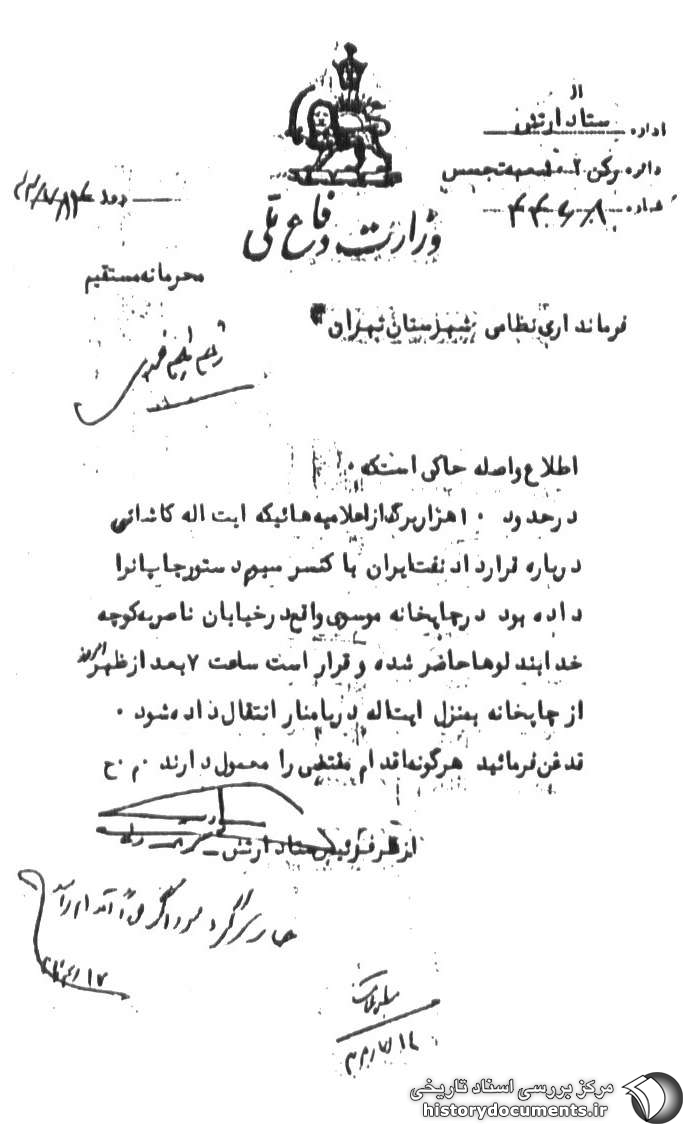 اداره ستاد ارتش
دائره رکن ۲ - شعبه تجسس
شماره ۴۴۶۸
وزارت دفاع ملی
محرمانه مستقیم
فرمانداری نظامی شهرستان تهران
اطلاع واصله حاکی استکه .
درحدود ۱۰هزار برگ از اعلامیه هائیکه ایت اله کاشانی
درباره قرارداد نفت ایران با کنسرسیوم دستور چاپ انرا
داده بود درچاپخانه موسوی واقع درخیابان ناصریه کوچه
خدابنده لوها حاضر شده و قرار است ساعت ۷ بعد از ظهر امروز
از چاپخانه بمنزل ایت اله درپامنار انتقال داده شود .
قدغن فرمائید هرگونه اقدام مقتضی را معمول دارند م.ح
از طرف رئیس ستاد ارتش
مرکز بررسی اسناد تاریخی
historydocuments.ir